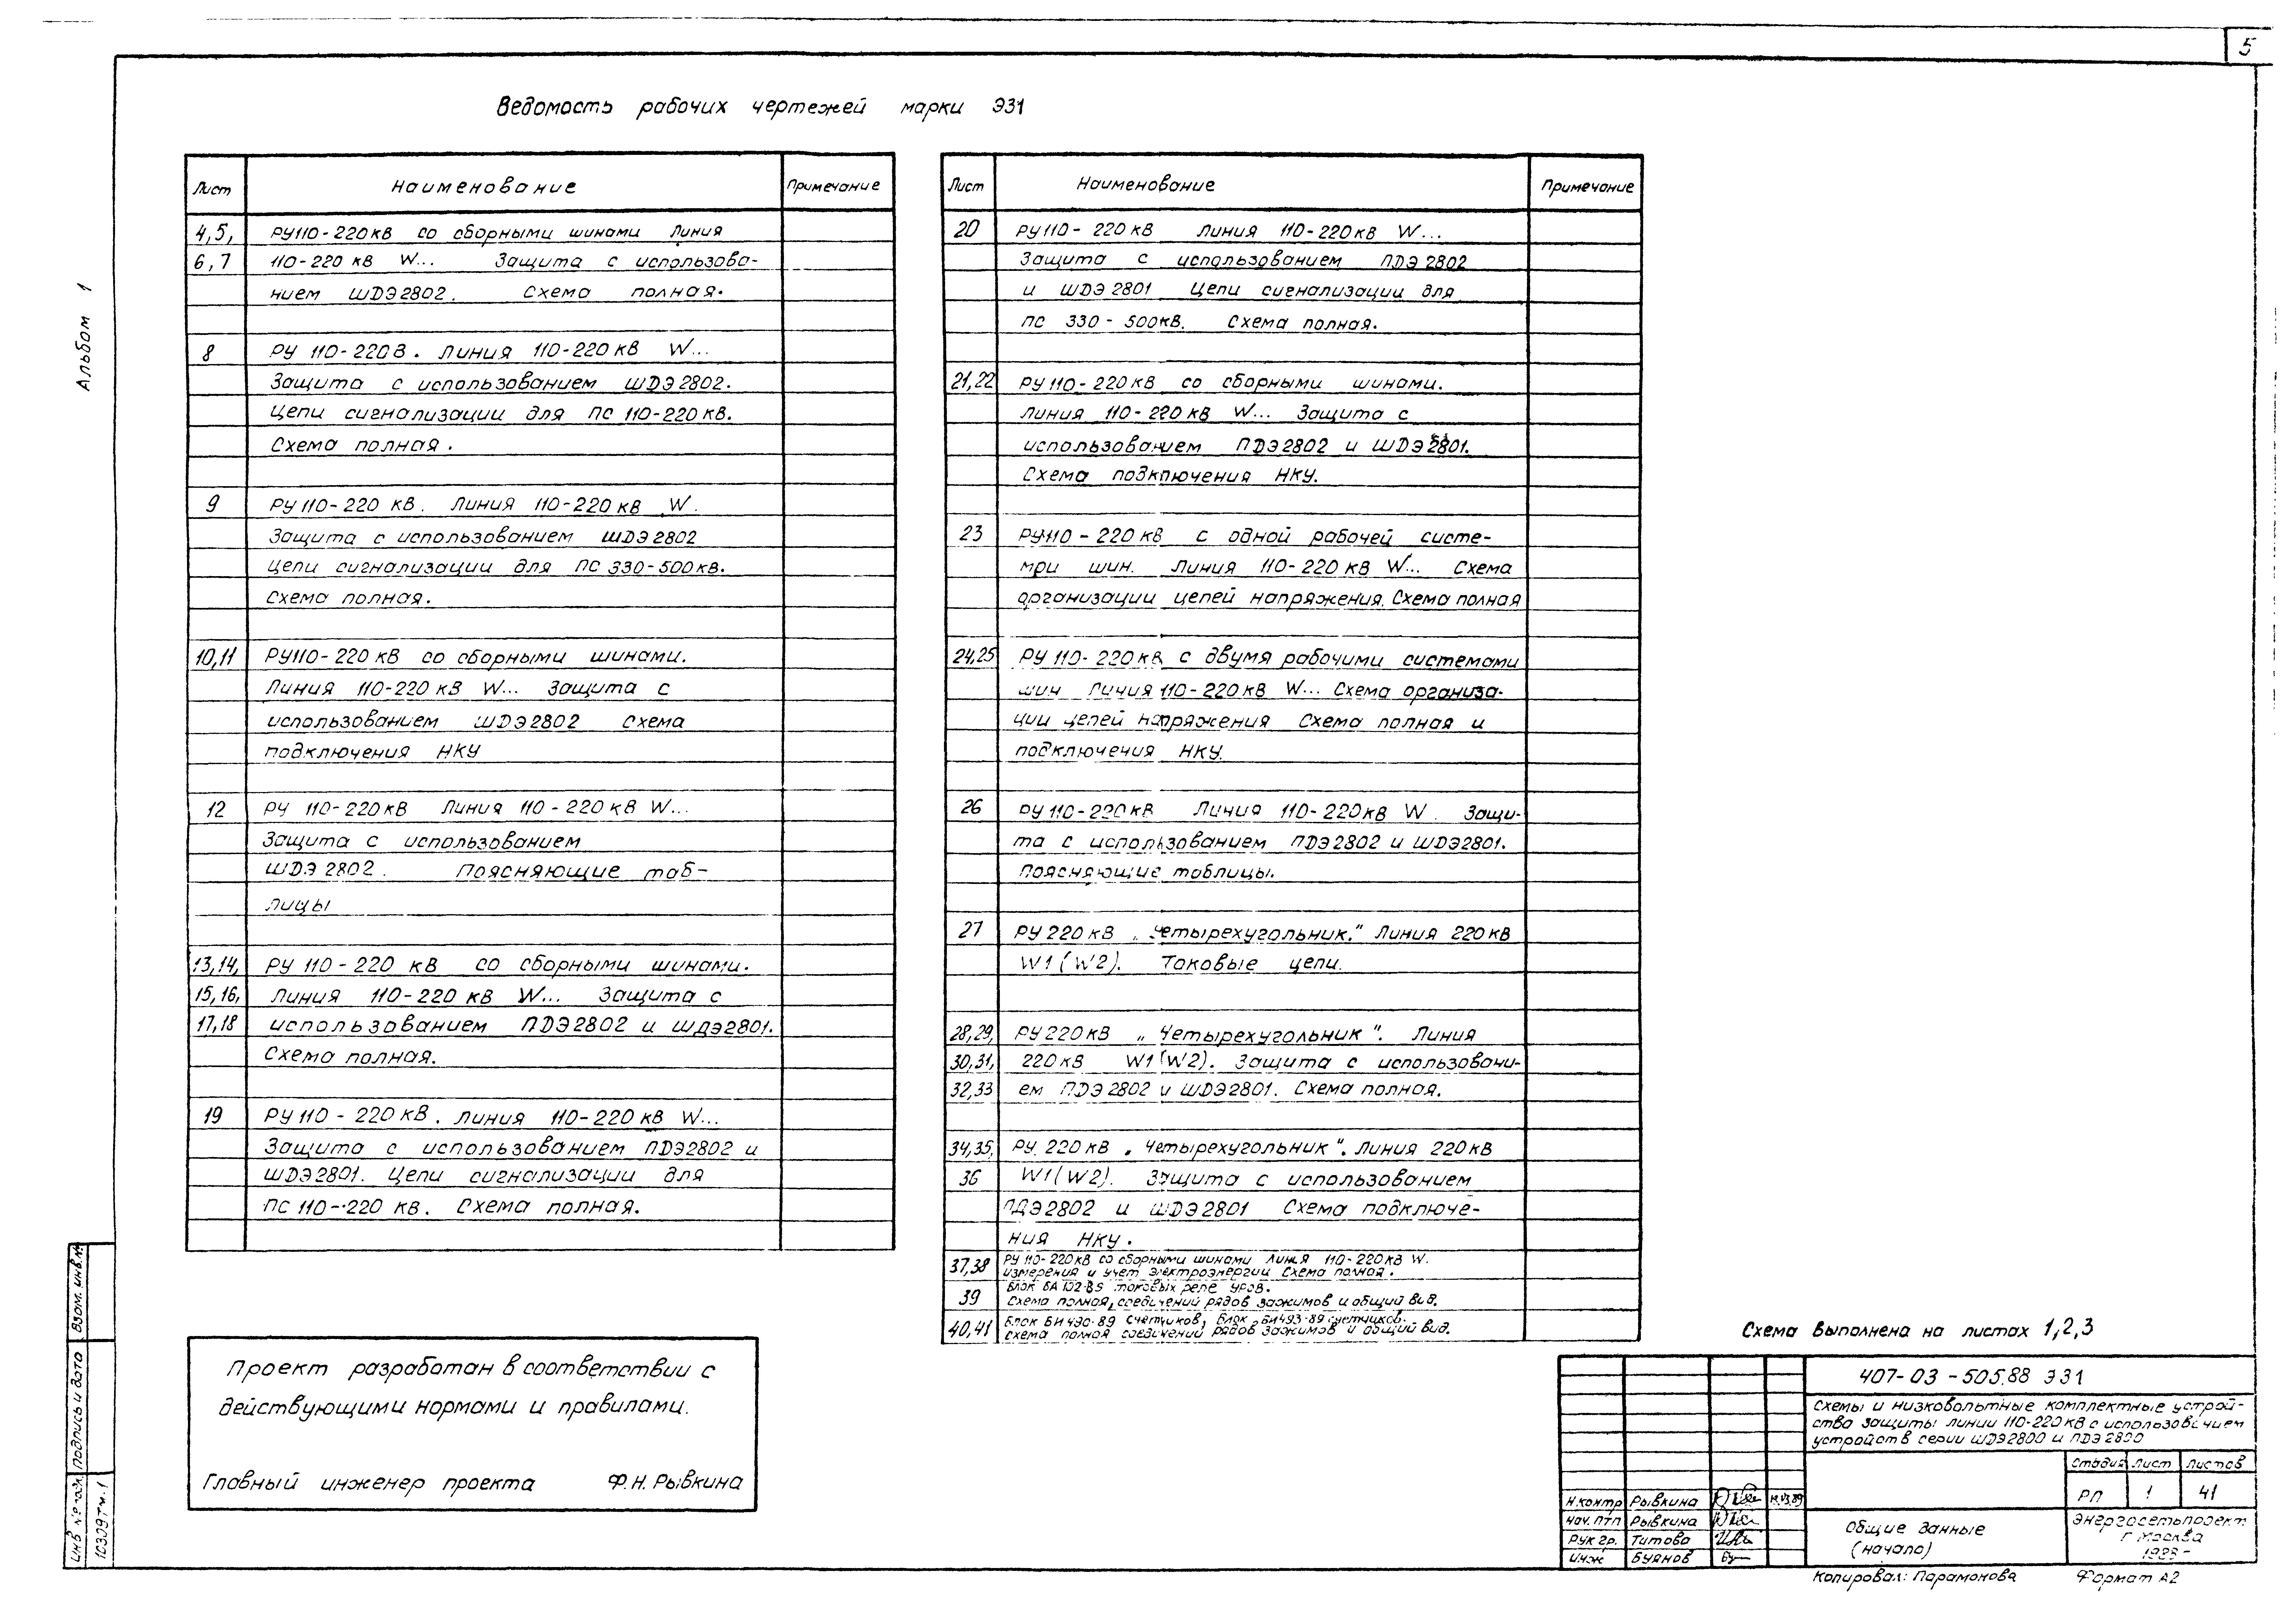 5
Альбом 1
Ведомость рабочих чертежей марки ЭЗ1
Лист Наименование Примечание
4,5, РУ110-220кВ со сборными шинами Линия
6,7 110-220 кВ W... Защита с использова-
нием ШДЭ2802. Схема полная.
8 РУ 110-220В. Линия 110-220 кВ W...
Защита с использованием ШДЭ2802.
Цепи сигнализации для ПС 110-220 кВ.
Схема полная.
9 РУ 110-220 кВ. Линия 110-220 кВ W.
Защита с использованием ШДЭ2802
Цепи сигнализации для ПС 330-500кВ.
Схема полная.
10,11 РУ110-220 кВ со сборными шинами.
Линия 110-220 кВ W... Защита с
использованием ШДЭ2802 Схема
подключения НКУ
12 РУ 110-220кВ Линия 110-220 кВ W...
Защита с использованием
ШДЭ 2802. Поясняющие таб-
лицы
13,14, РУ 110-220 кВ со сборными шинами.
15,16, Линия 110-220 кВ W... Защита с
17,18 использованием ПДЭ2802 и ШДЭ2801.
Схема полная.
19 РУ 110-220 кВ. Линия 110-220 кВ W...
Защита с использованием ПДЭ2802 и
ШДЭ2801. Цепи сигнализации для
ПС 110-220 кВ. Схема полная.
Лист Наименование Примечание
20 РУ 110-220 кВ Линия 110-220кВ W...
Защита с использованием ПДЭ 2802
и ШДЭ 2801 Цепи сигнализации для
ПС 330-500кВ. Схема полная.
21,22 РУ 110-220 кВ со сборными шинами.
Линия 110-220 кВ W... Защита с
использованием ПДЭ2802 и ШДЭ2801.
Схема подключения НКУ.
23 РУ110-220 кВ с одной рабочей систе-
мри шин. Линия 110-220 кВ W... Схема
организации цепей напряжения. Схема полная
24,25 РУ 110-220кВ с двумя рабочими системами
шин Линия 110-220 кВ W... Схема организа-
ции цепей напряжения Схема полная и
подключения НКУ.
26 РУ 110-220кВ Линия 110-220кВ W. Защи-
та с использованием ПДЭ2802 и ШДЭ2801.
Поясняющие таблицы.
27 РУ 220 кВ „Четырехугольник." Линия 220 кВ
W1 (W2). Токовые цепи.
28,29, РУ 220 кВ „Четырехугольник". Линия
30,31, 220 кВ W1(W2). Защита с использовани-
32,33 ем ПДЭ 2802 и ШДЭ2801. Схема полная.
34,35, РУ. 220 кВ „Четырехугольник". Линия 220 кВ
36 W1(W2). Защита с использованием
ПДЭ2802 и ШДЭ2801 Схема подключе-
ния НКУ.
37,38 РУ 110-220кВ со сборными шинами Линия 110-220кВ W.
измерения и учет электроэнергии Схема полная.
39 Блок токовых реле УРОВ.
Схема полная, соединений рядов зажимов и общий вид.
40,41 Блок БИ490-89 счетчиков, Блок БИ493-89 счетчиков.
Схема полная соединений рядов зажимов и общий вид.
Проект разработан в соответствии с
действующими нормами и правилами.
Главный инженер проекта Ф.Н. Рывкина
Схема выполнена на листах 1,2,3
407-03-505.88 ЭЗ1
Схемы и низковольтные комплектные устрой-
ства защиты линии 110-220 кВ с использованием
устройств серии ШДЭ2800 и ПДЭ2800
Стадия Лист Листов
РП 1 41
Н.контр Рывкина
Нач. ПТП Рывкина
Рук гр. Титова
Инж Буянов
Общие данные
(начало)
Энергосетьпроект
г Москва
Копировал: Парамонова Формат А2
Взам. инв.№
Подпись и дата
Инв № подл.
10309тм.1